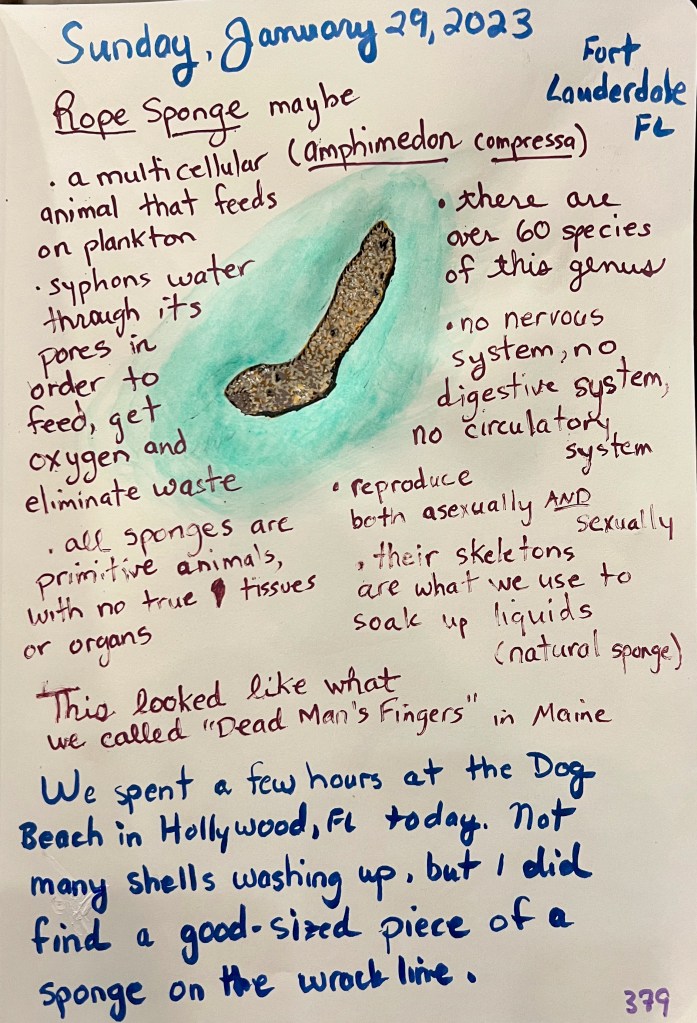 Sunday, January 29, 2023
Fort
Lauderdale
FL
Rope Sponge maybe
(amphimedon compressa)
. a multicellular
animal that feeds
on plankton
. syphons water
through its
pores in
order to
feed, get
oxygen and
eliminate waste
. all sponges are
primitive animals,
with no true tissues
or organs
. there are
over 60 species
of this genus
. no nervous
system, no
digestive system,
no circulatory
system
. reproduce
both asexually AND
sexually
. their skeletons
are what we use to
soak up liquids
(natural sponge)
This looked like what
we called "Dead Man's Fingers" in Maine
We spent a few hours at the Dog
Beach in Hollywood, FL today. Not
many shells washing up, but I did
find a good-sized piece of a
sponge on the wrack line.
379